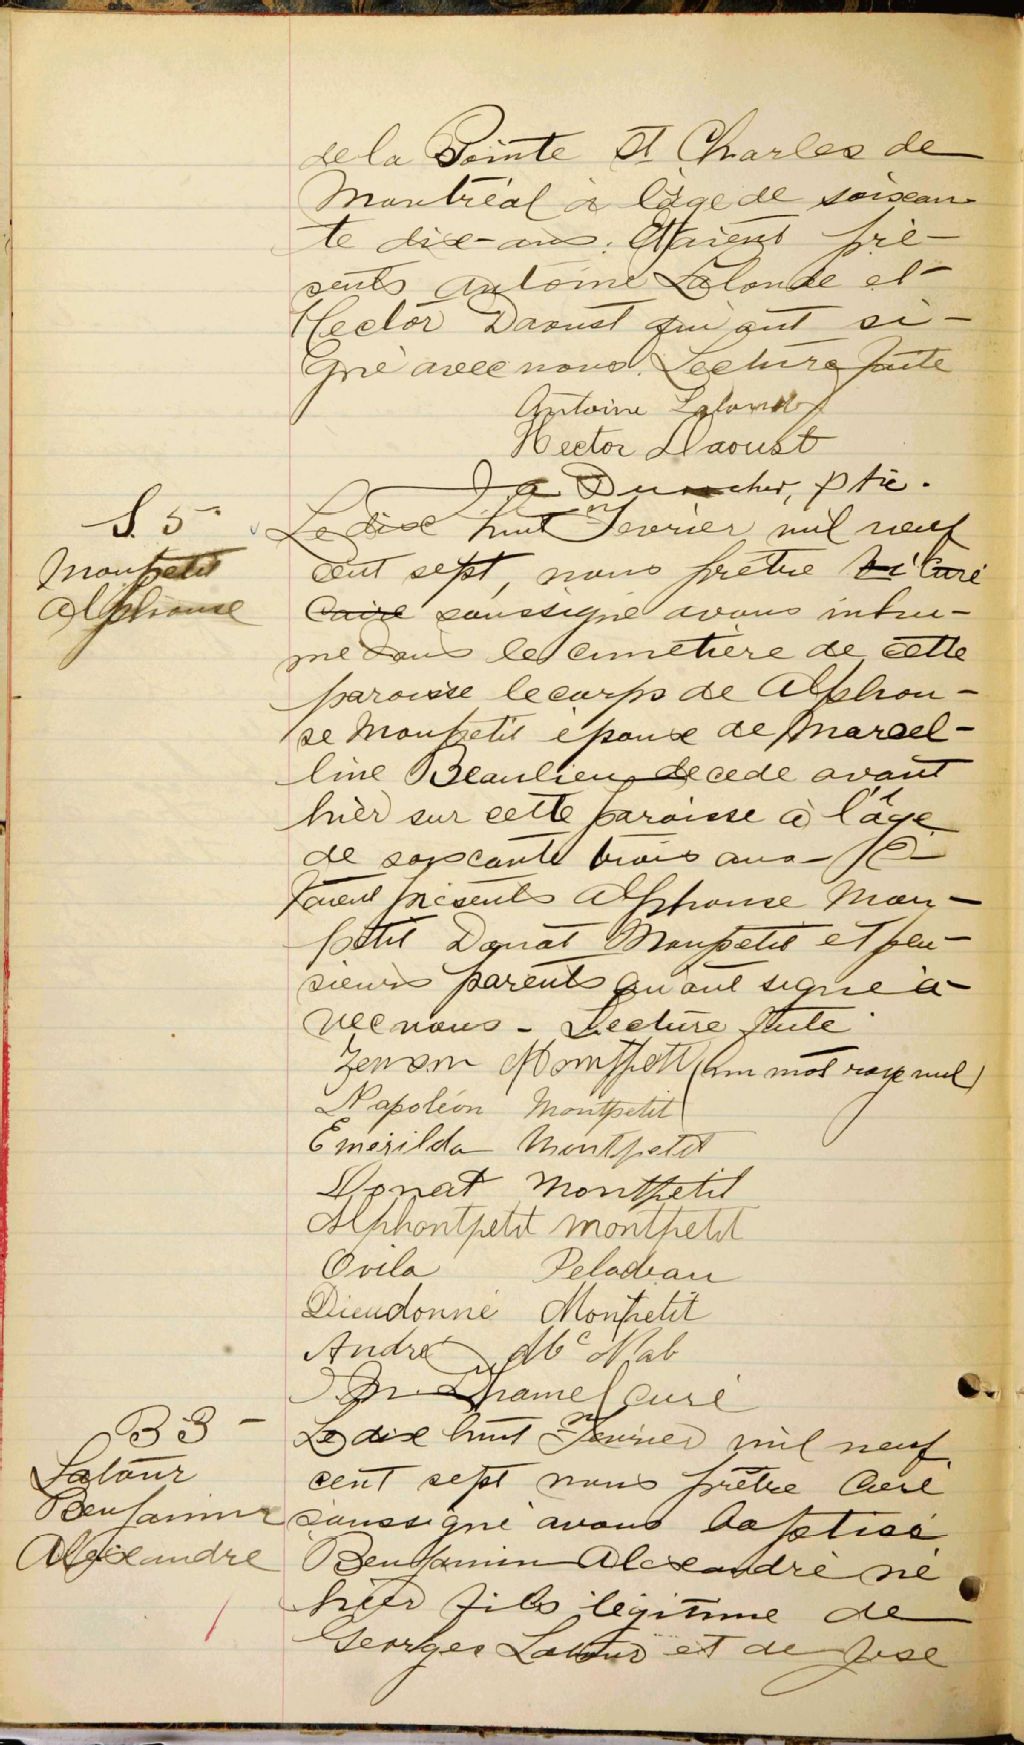 de la Pointe St Charles de
Montréal à l'âge de soixan-
te dix-ans. Etaient pré-
sents Antoine Lalonde et
Hector Daoust qui ont si-
gné avec nous. Lecture faite
Antoine Lalonde
Hector Daoust
J A Durocher, ptre.
S. 5
Montpetit
Alphonse
Le dix huit Fevrier mil neuf
cent sept, nous prêtre Vi Curé
Caire soussigné avons inhu-
mé dans le cimetière de cette
paroisse le corps de Alphon-
se Monpetit époux de Marcel-
line Beaulieu decede avant
hier sur cette paroisse à l'âge
de soixante trois ans - E-
taient présents Alphonse Mon-
petit Donat Monpetit et plu-
sieurs parents qui ont signé a-
vec nous - Lecture faite
Zenon Montpetit (un mot rayé nul)
Napoléon Montpetit
Emerilda Montpetit
Donat Montpetit
Alphontpetit montpetit
Ovila Peladeau
Dieudonné Monpetit
André Mc Nab
Duhamel curé
B 3 -
Latour
Benjamin
Alexandre
Le dix huit Fevrier mil neuf
cent sept nous prêtre Curé
soussigné avons baptisé
Benjamin Alexandre né
hier fils légitime de
Georges Latour et de José